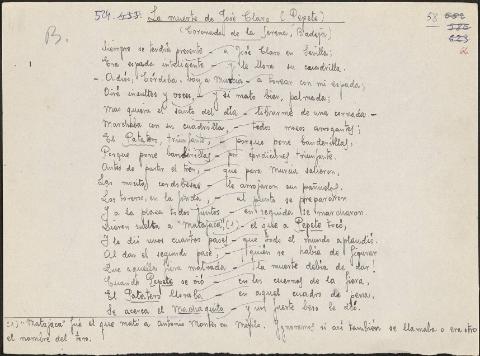 La muerte de José Claro (Pepete)
(Coronada de la Serena, Badajoz)
B.
Siempre se tendrá presente – a José Claro en Sevilla;
Era espada inteligente – y le llora su cuadrilla.
– Adiós, Córdoba, voy a Murcia – a torear con mi espada;
Oiré insultos y voces, – y si mato bien, palmada;
Mas quiera el santo del día – librarme de una cornada –
Marchaba con su cuadrilla, – todos mozos arrogantes;
El Patatero, triunfante, – porque pone banderillas,
Porque pone banderillas – por triunfante.
Antes de partir el tren, – que para Murcia salieron,
Las mocitas cordobesas – le arrojaron sus pañuelos.
Los toreros, en la fonda, – al punto se prepararon
Y a la plaza todos juntos – en seguida se marcharon.
Dieron suelta a "Matajaca" (1) – el que a Pepete tocó,
Y le dió unos cuantos pases – que todo el mundo aplaudió.
Al dar el segundo pase, – ¡quién se había de figurar
Que aquella fiera malvada – la muerte debía de dar!
Cuando Pepete se vió – en los cuernos de la fiera,
El Patatero lloraba – en aquel cuadro de pena,
Se acerca el Machaquito – y un fuerte beso le dió.
(1) "Matajaca" fué el que mató a Antonio Montes en Méjico. Ignoramos si así también se llamaba o era otro
el nombre del toro.